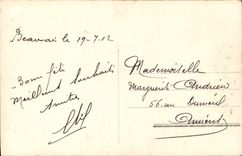 Beauvais le 19-7-12
- Bonne fête
Meilleurs souhaits
Amitiés
Mademoiselle
Marguerite Andrieu
56 rue Duméril
Amiens